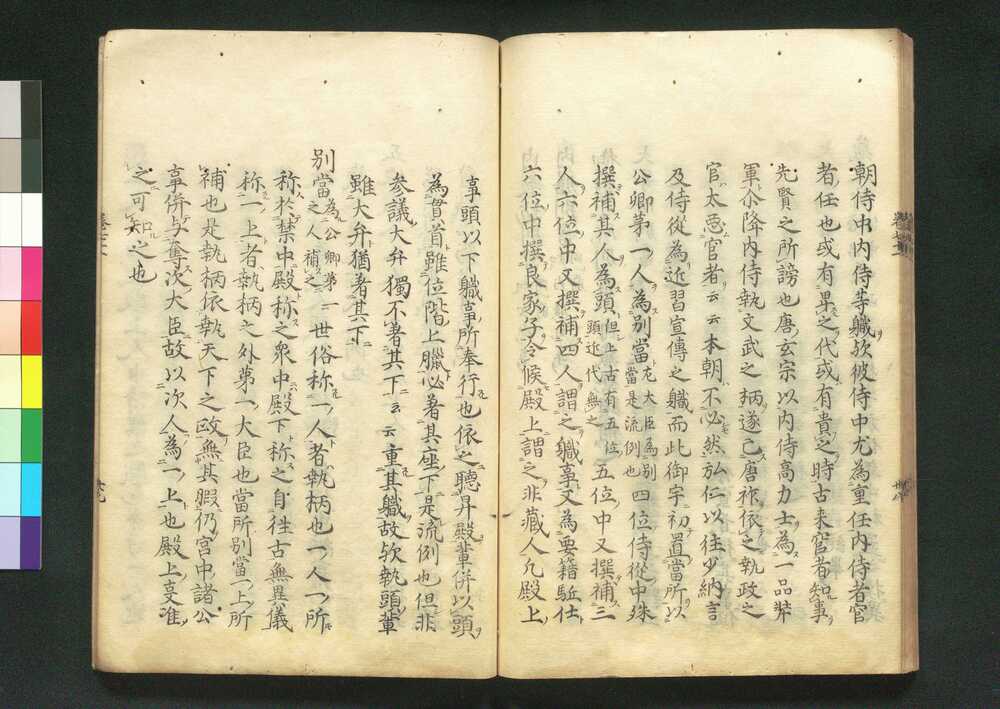 朝侍中内侍等軄欤彼侍中尤為重任内侍者官
者任也或有畧之代或有貴之時古来官者知事
先賢之所謗也唐玄宗以内侍高力士為一品将
軍尒降内侍執文武之柄遂亡唐祚依之執政之
官太悪官者云云本朝不必然弘仁以往少納言
及侍従為近習宣傳之軄而此御宇初置當所以
公卿第一人為別當左大臣為別
當是流例也四位侍従中殊
撰補其人為頭但上古有五位
頭近代無之五位中又撰補三
人六位中又撰補四人謂之軄事又為要籍駈仕
六位中撰良家子令候殿上謂之非蔵人凡殿上
事頭以下軄事所奉行也依之聴昇殿輩併以頭
為貫首雖位階上臈必着其座下是流例也但非
参議大弁獨不着其下云云重其軄故欤執頭輩
雖大弁猶着其下
別當為公卿第一
之人補之世俗称一人者執柄也一人一所
称於禁中殿称之衆中殿下称之自往古無異儀
称一上者執柄之外第一大臣也當所別當一上所
補也是執柄依執天下之政無其暇仍宮中諸公
事併与奪次大臣故以次人為一上也殿上㕝准
之可知之也